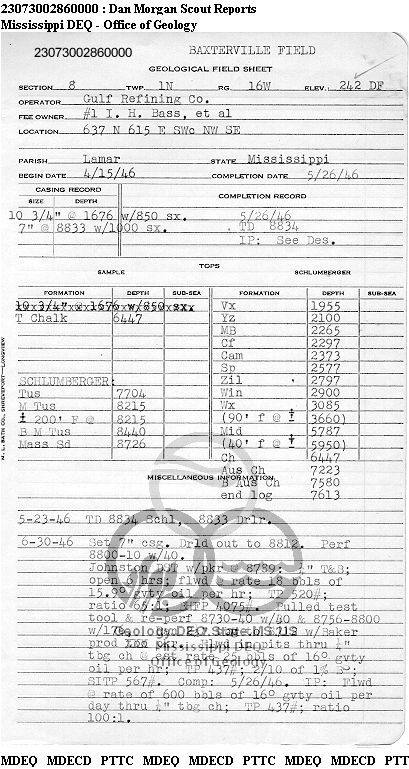 23073002860000 : Dan Morgan Scout Reports
Mississippi DEQ - Office of Geology
23073002860000 BAXTERVILLE FIELD
GEOLOGICAL FIELD SHEET
SECTION 8 TWP. 1N RG. 16W ELEV. 242 DF
OPERATOR Gulf Refining Co.
FEE OWNER #1 I. H. Bass, et al
LOCATION 637 N 615 E SWc NW SE
PARISH Lamar STATE Mississippi
BEGIN DATE 4/15/46 COMPLETION DATE 5/26/46
CASING RECORD COMPLETION RECORD
SIZE DEPTH
10 3/4" @ 1676 w/850 sx. 5/26/46
7" @ 8833 w/1000 sx. TD 8834
IP: See Des.
TOPS
SAMPLE SCHLUMBERGER
FORMATION DEPTH SUB-SEA FORMATION DEPTH SUB-SEA
10 3/4" @ 1676 w/850 sx. Vx 1955
T Chalk 6447 Yz 2100
MB 2265
Cf 2297
Cam 2373
Sp 2577
SCHLUMBERGER: Zil 2797
Tus 7704 Win 2900
M Tus 8215 Wx 3085
± 200' F @ 8215 (90' f @ ± 3660)
B M Tus 8440 Mid 5787
Mass Sd 8726 (40' f @ ± 5950)
Ch 6447
Aus Ch 7223
MISCELLANEOUS INFORMATION
B Aus Ch 7580
end log 7613
5-23-46 TD 8834 Schl, 8833 Drlr.
6-30-46 Set 7" csg. Drld out to 8812. Perf
8800-10 w/40.
Johnston DST w/pkr @ 8789: ¼" T&B;
open 6 hrs; flwd @ rate 18 bbls of
15.9° gvty oil per hr; TP 520#;
ratio 65:1; SHTP 4075#. Pulled test
tool & re-perf 8730-40 w/40 & 8756-8800
w/176. tbg to w/Baker
Geology.DEQ.State.MS.US
prod pkr. Flwd in pits thru ¼"
Mississippi DEQ
tbg ch @ est rate 25 bbls of 16° gvty
Office of Geology
oil per hr; TP 437#; 2/10 of 1%
SITP 567#. Comp: 5/26/46. IP: Flwd
@ rate of 600 bbls of 16° gvty oil per
day thru ¼" tbg ch; TP 437#; ratio
100:1.
M. L. BATH CO., SHREVEPORT—LONGVIEW
MDEQ MDECD PTTC MDEQ MDECD PTTC MDEQ MDECD PTT